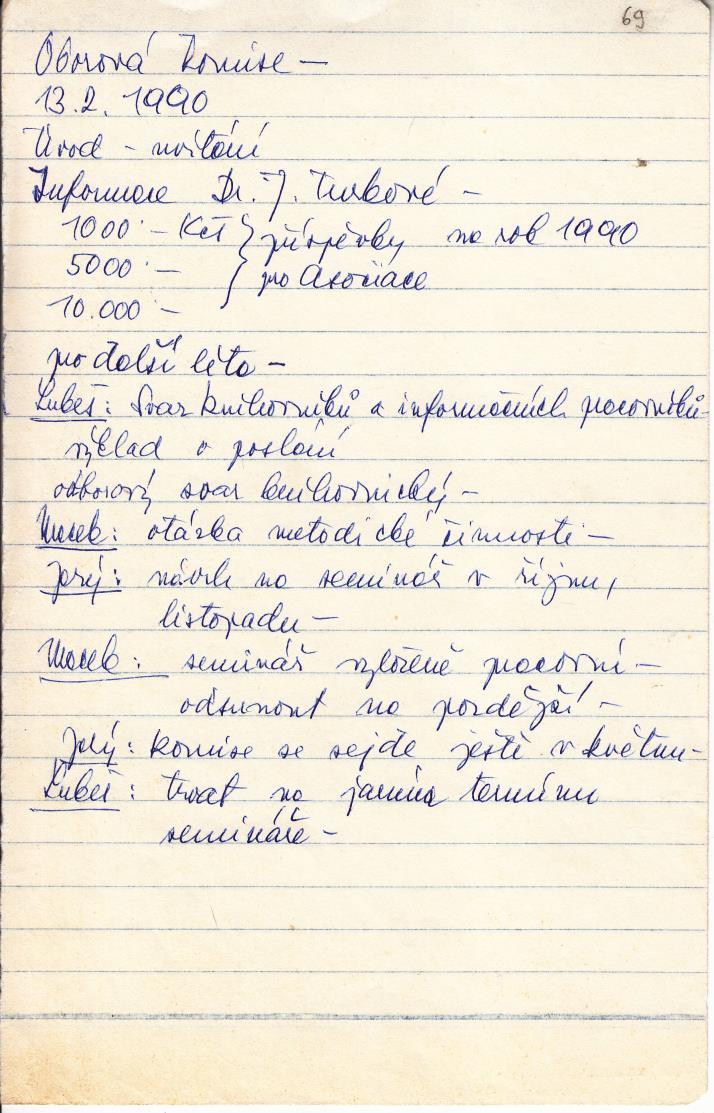 69
Oborová komise –
13.2.1990
Úvod – uvítání
Informace Dr. J. Turkové –
1000·– Kčs } příspěvky na rok 1990
5000·– } pro Asociace
10.000·–
pro další léta –
Lubeš: Svaz knihovníků a informačních pracovníků –
výklad o poslání
odborový svaz knihovnický –
Macek: otázka metodické činnosti –
návrh na seminář v říjnu,
listopadu –
Macek: seminář vyloženě pracovní –
odsunout na pozdější –
komise se sejde ještě v květnu –
Lubeš: trvat na termínu
semináře –